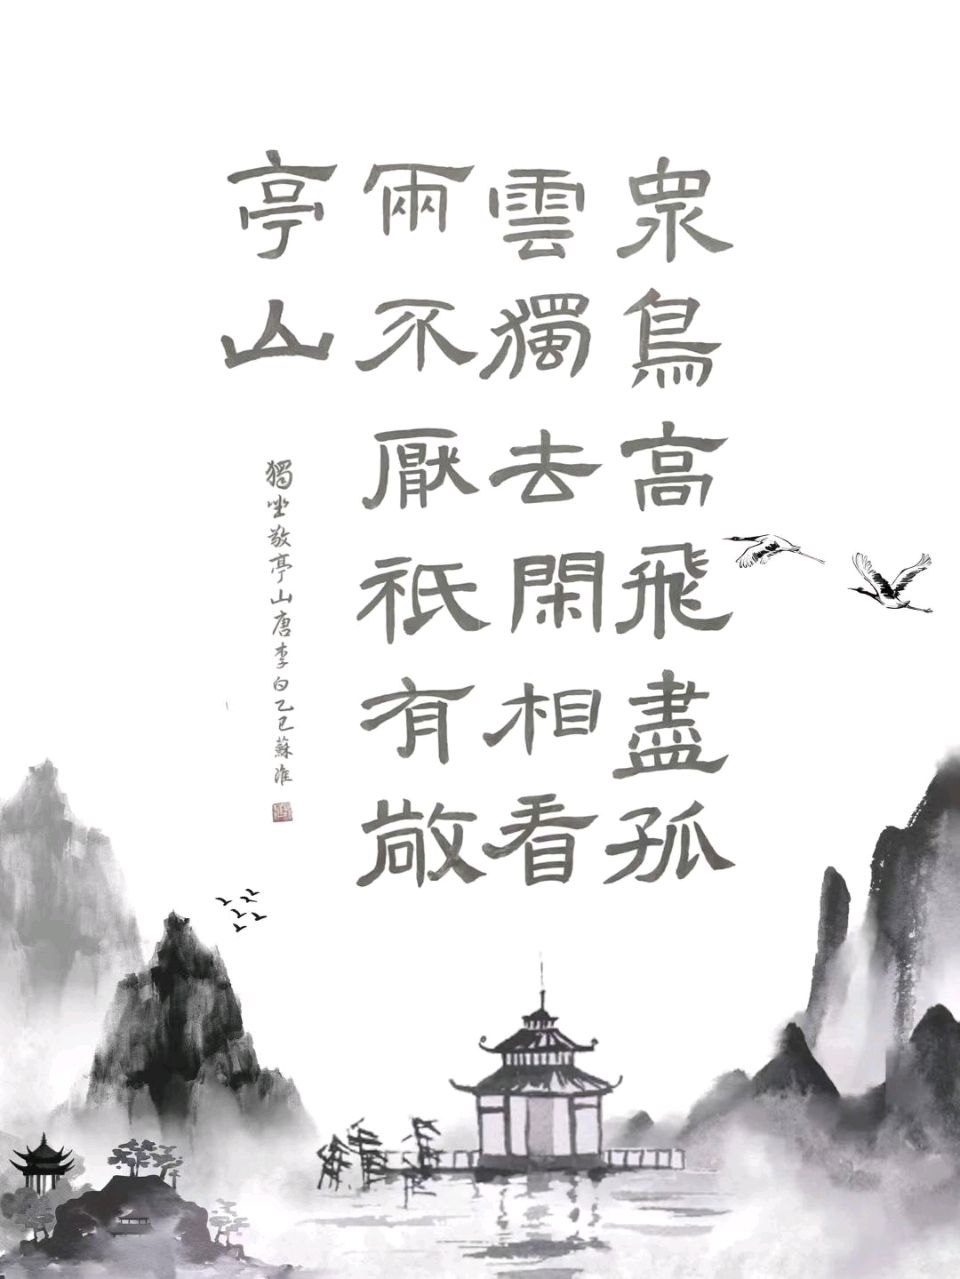 眾鳥高飛盡孤
雲獨去閑相看
兩不厭祇有敬
亭山
獨坐敬亭山唐李白乙巳蘇淮